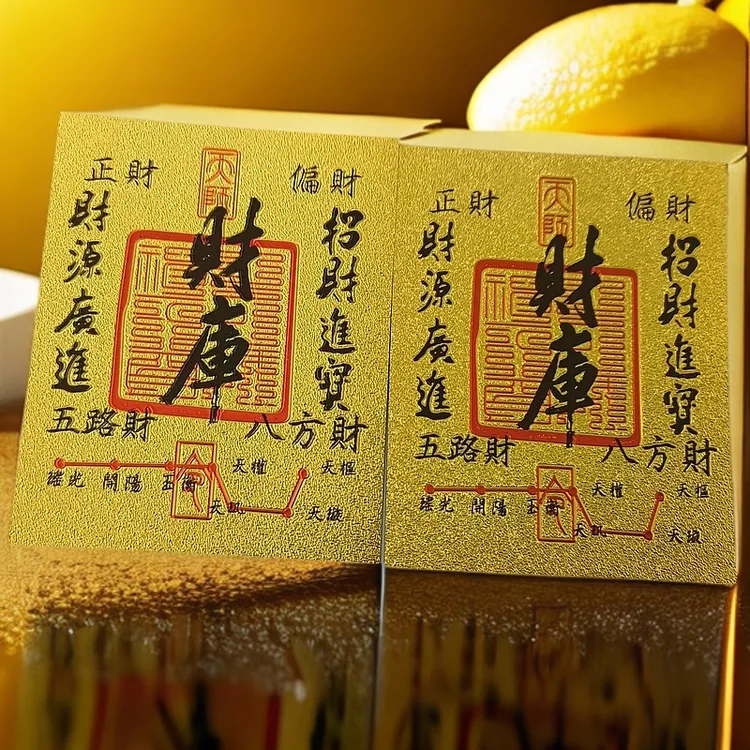 天師
正財
偏財
財源廣進
財庫
招財進寶
五路財
八方財
瑤光
開陽
玉衡
天權
天樞
天璣
天璇
天師
正財
偏財
財源廣進
財庫
招財進寶
五路財
八方財
瑤光
開陽
玉衡
天權
天樞
天璣
天璇